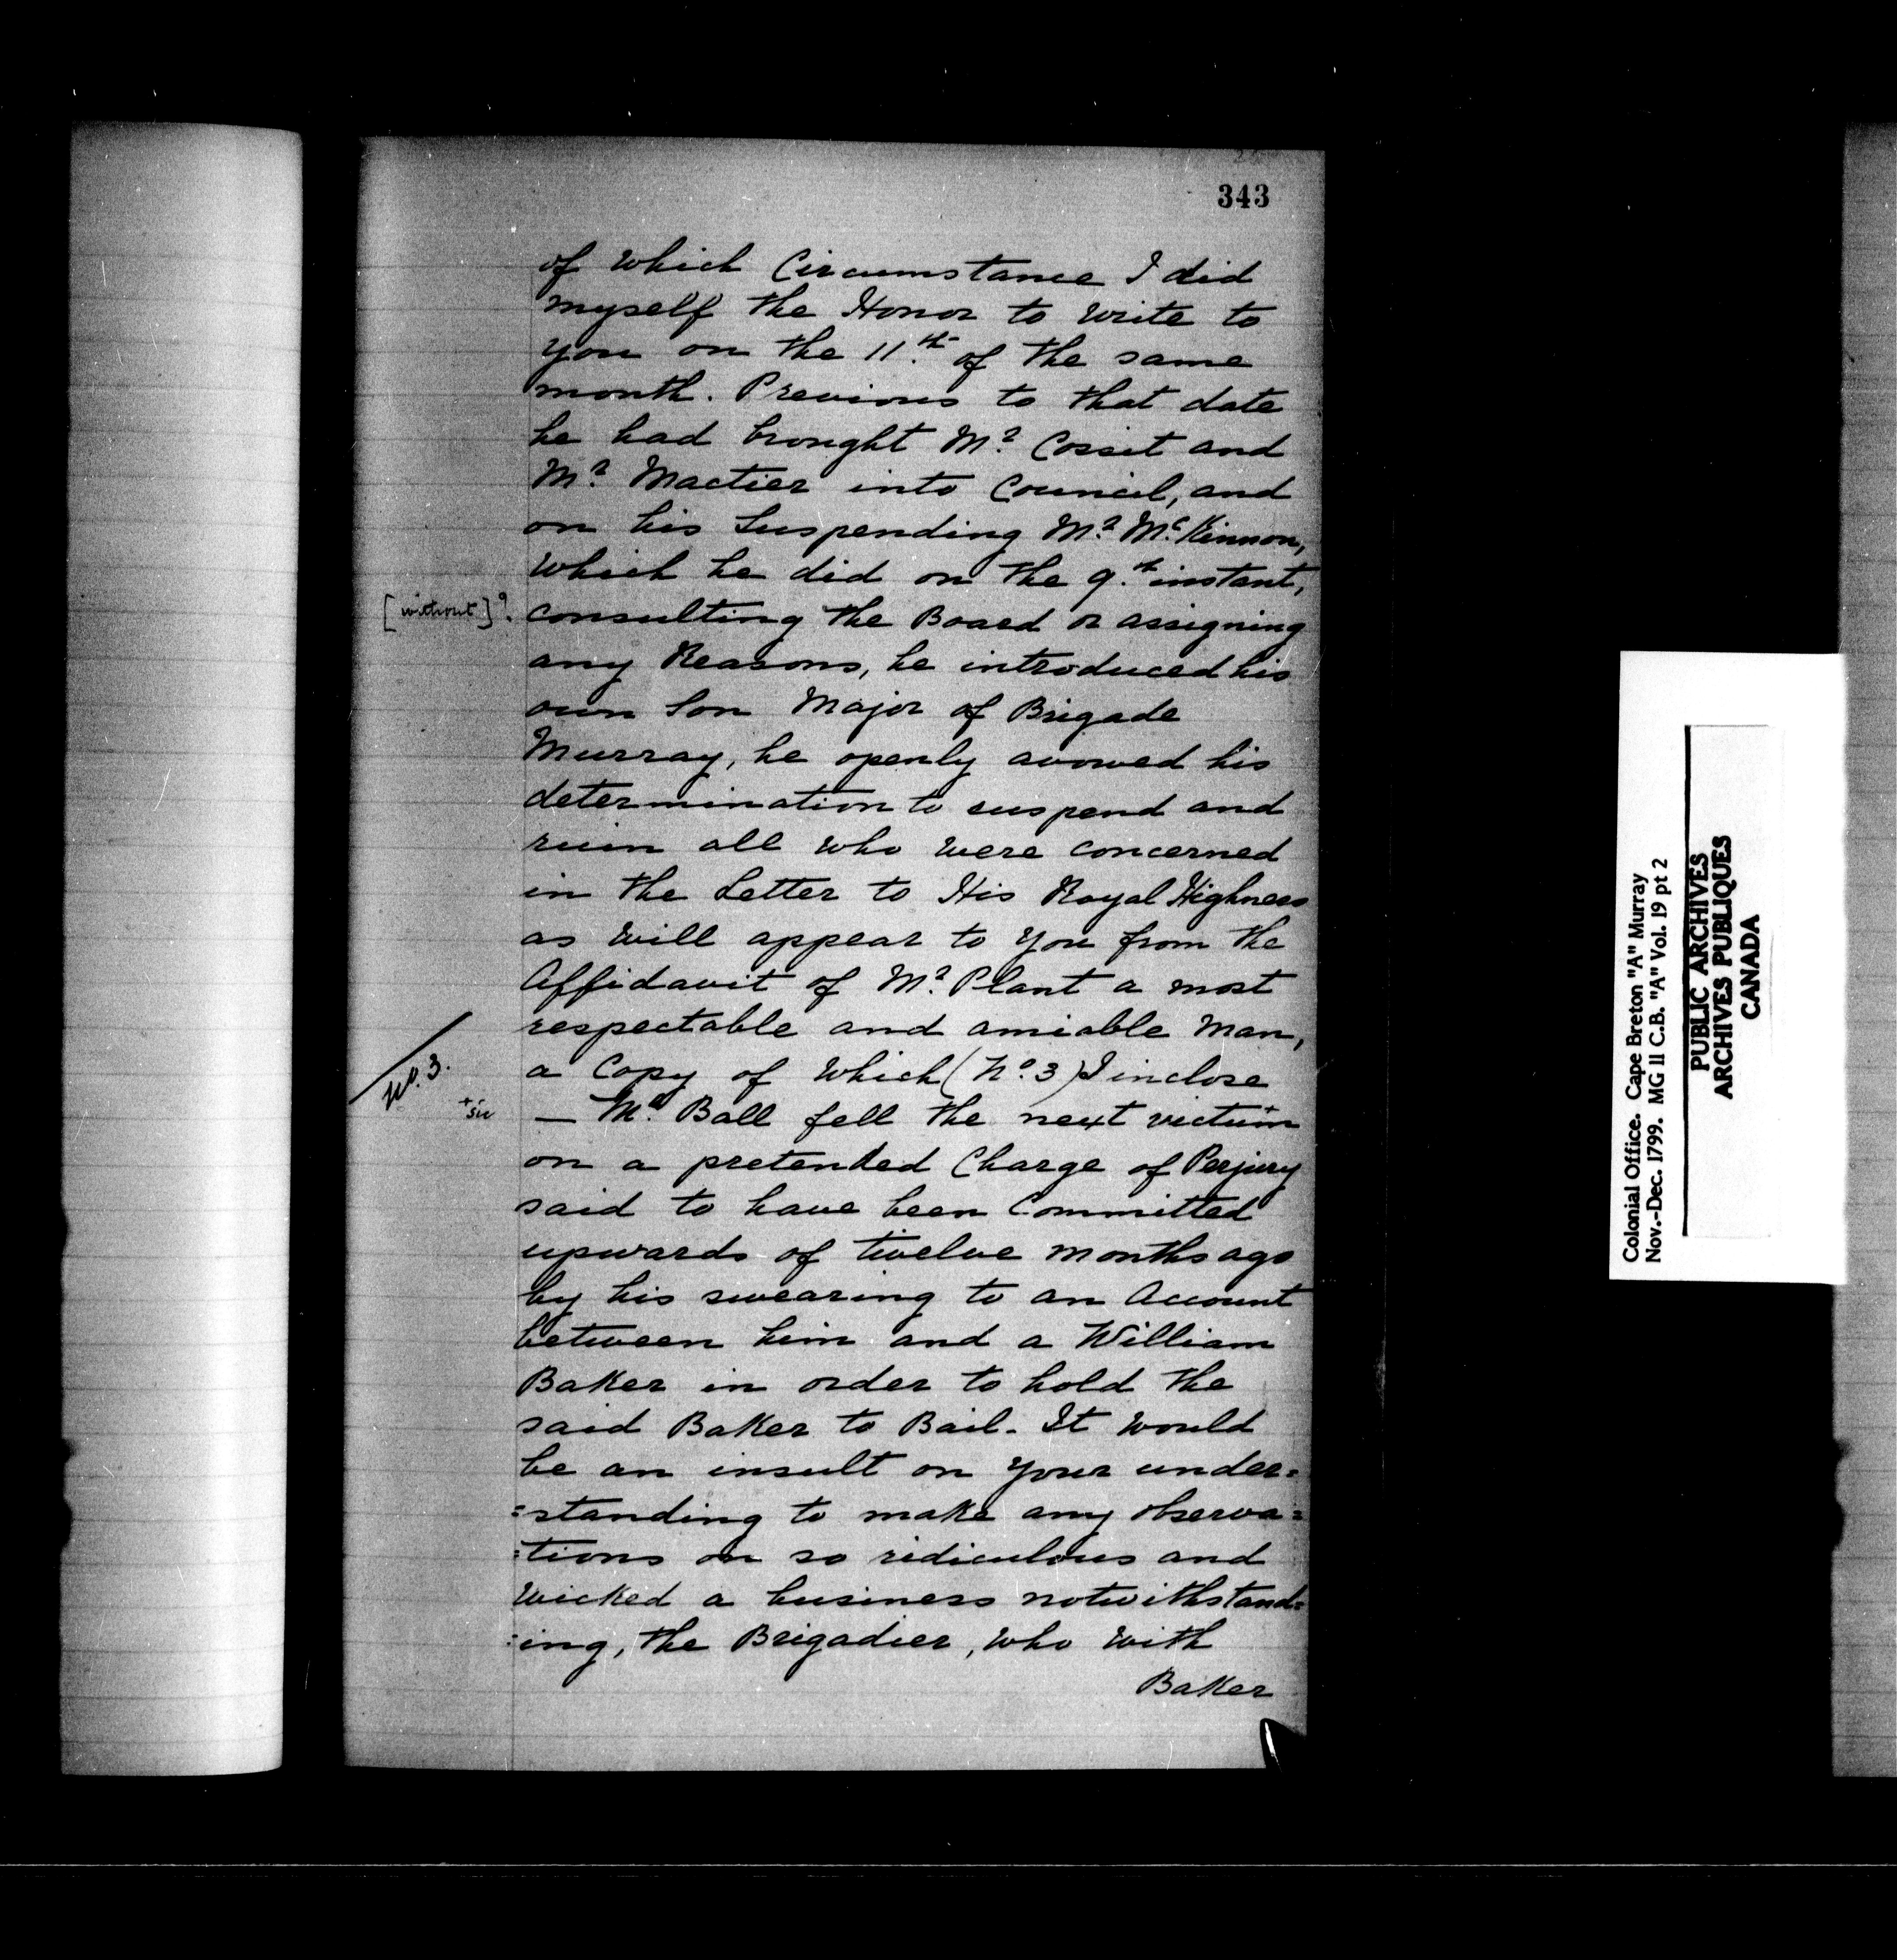 343
of which Circumstance I did
myself the Honor to write to
you on the 11.th of the same
month. Previous to that date
he had brought Mr. Cossit and
Mr. Mactier into Council, and
on his Suspending Mr. McKinnon,
which he did on the 9.th instant,
[without]?
consulting the Board or assigning
any Reasons, he introduced his
own Son Major of Brigade
Murray, he openly avowed his
determination to suspend and
ruin all who were concerned
in the Letter to His Royal Highness
as will appear to you from the
Affidavit of Mr. Plant a most
respectable and amiable Man,
No. 3.
a Copy of which (No. 3) I inclose
+ sic
— Mr. Ball fell the next victum+
on a pretended Charge of Perjury
said to have been Committed
upwards of twelve months ago
by his swearing to an Account
between him and a William
Baker in order to hold the
said Baker to Bail. It would
be an insult on your under=
=standing to make any observa=
=tions on so ridiculous and
wicked a business notwithstand=
=ing, the Brigadier, who with
Baker
Colonial Office. Cape Breton "A" Murray
Nov.-Dec. 1799. MG 11 C.B. "A" Vol. 19 pt 2
PUBLIC ARCHIVES
ARCHIVES PUBLIQUES
CANADA